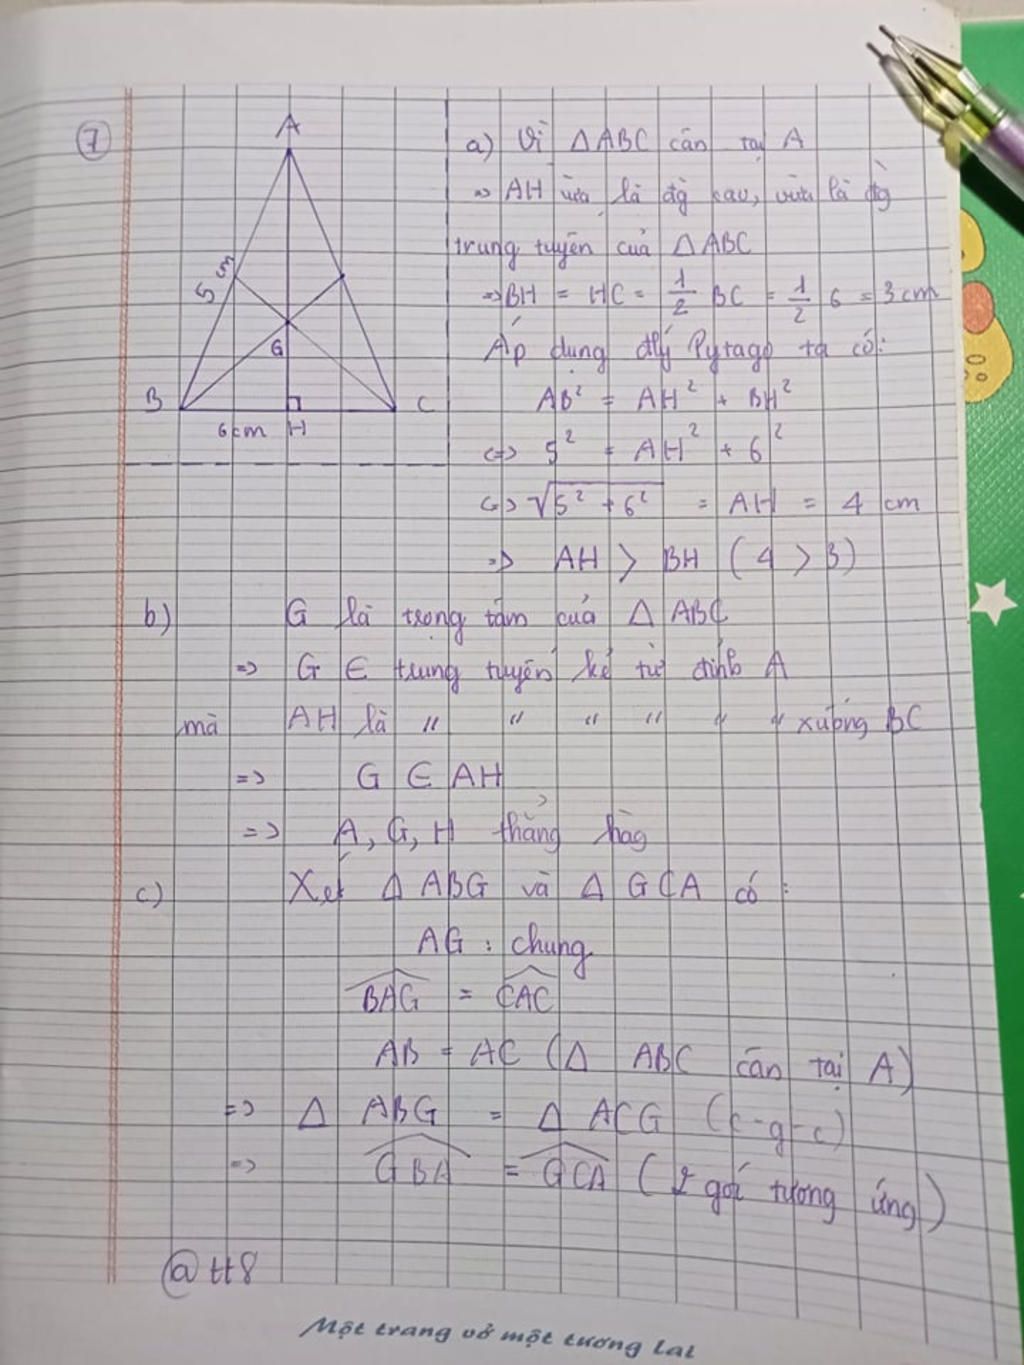 7
A
5
G
B
C
6cm
H
a) Vì ΔABC cân tại A
=> AH vừa là đg cao, vừa là đg
trung tuyến của ΔABC
=> BH = HC = 1/2 BC = 1/2 6 = 3 cm
Áp dụng đlý Pytago ta có:
AB² = AH² + BH²
<=> 5² = AH² + 6²
<=> √5² + 6² = AH = 4 cm
=> AH > BH (4 > 3)
b) G là trọng tâm của Δ ABC
=> G ∈ trung tuyến kẻ từ đỉnh A
mà AH là " " " " " " xuống BC
=> G ∈ AH
=> A, G, H thẳng hàg
c) Xét Δ ABG và Δ GCA có :
AG : chung
BAG = CAC
AB = AC (Δ ABC cân tại A)
=> Δ ABG = Δ ACG (c-g-c)
=> GBA = GCA (2 góc tương ứng)
@ttt8
Một trang vở một tương lai